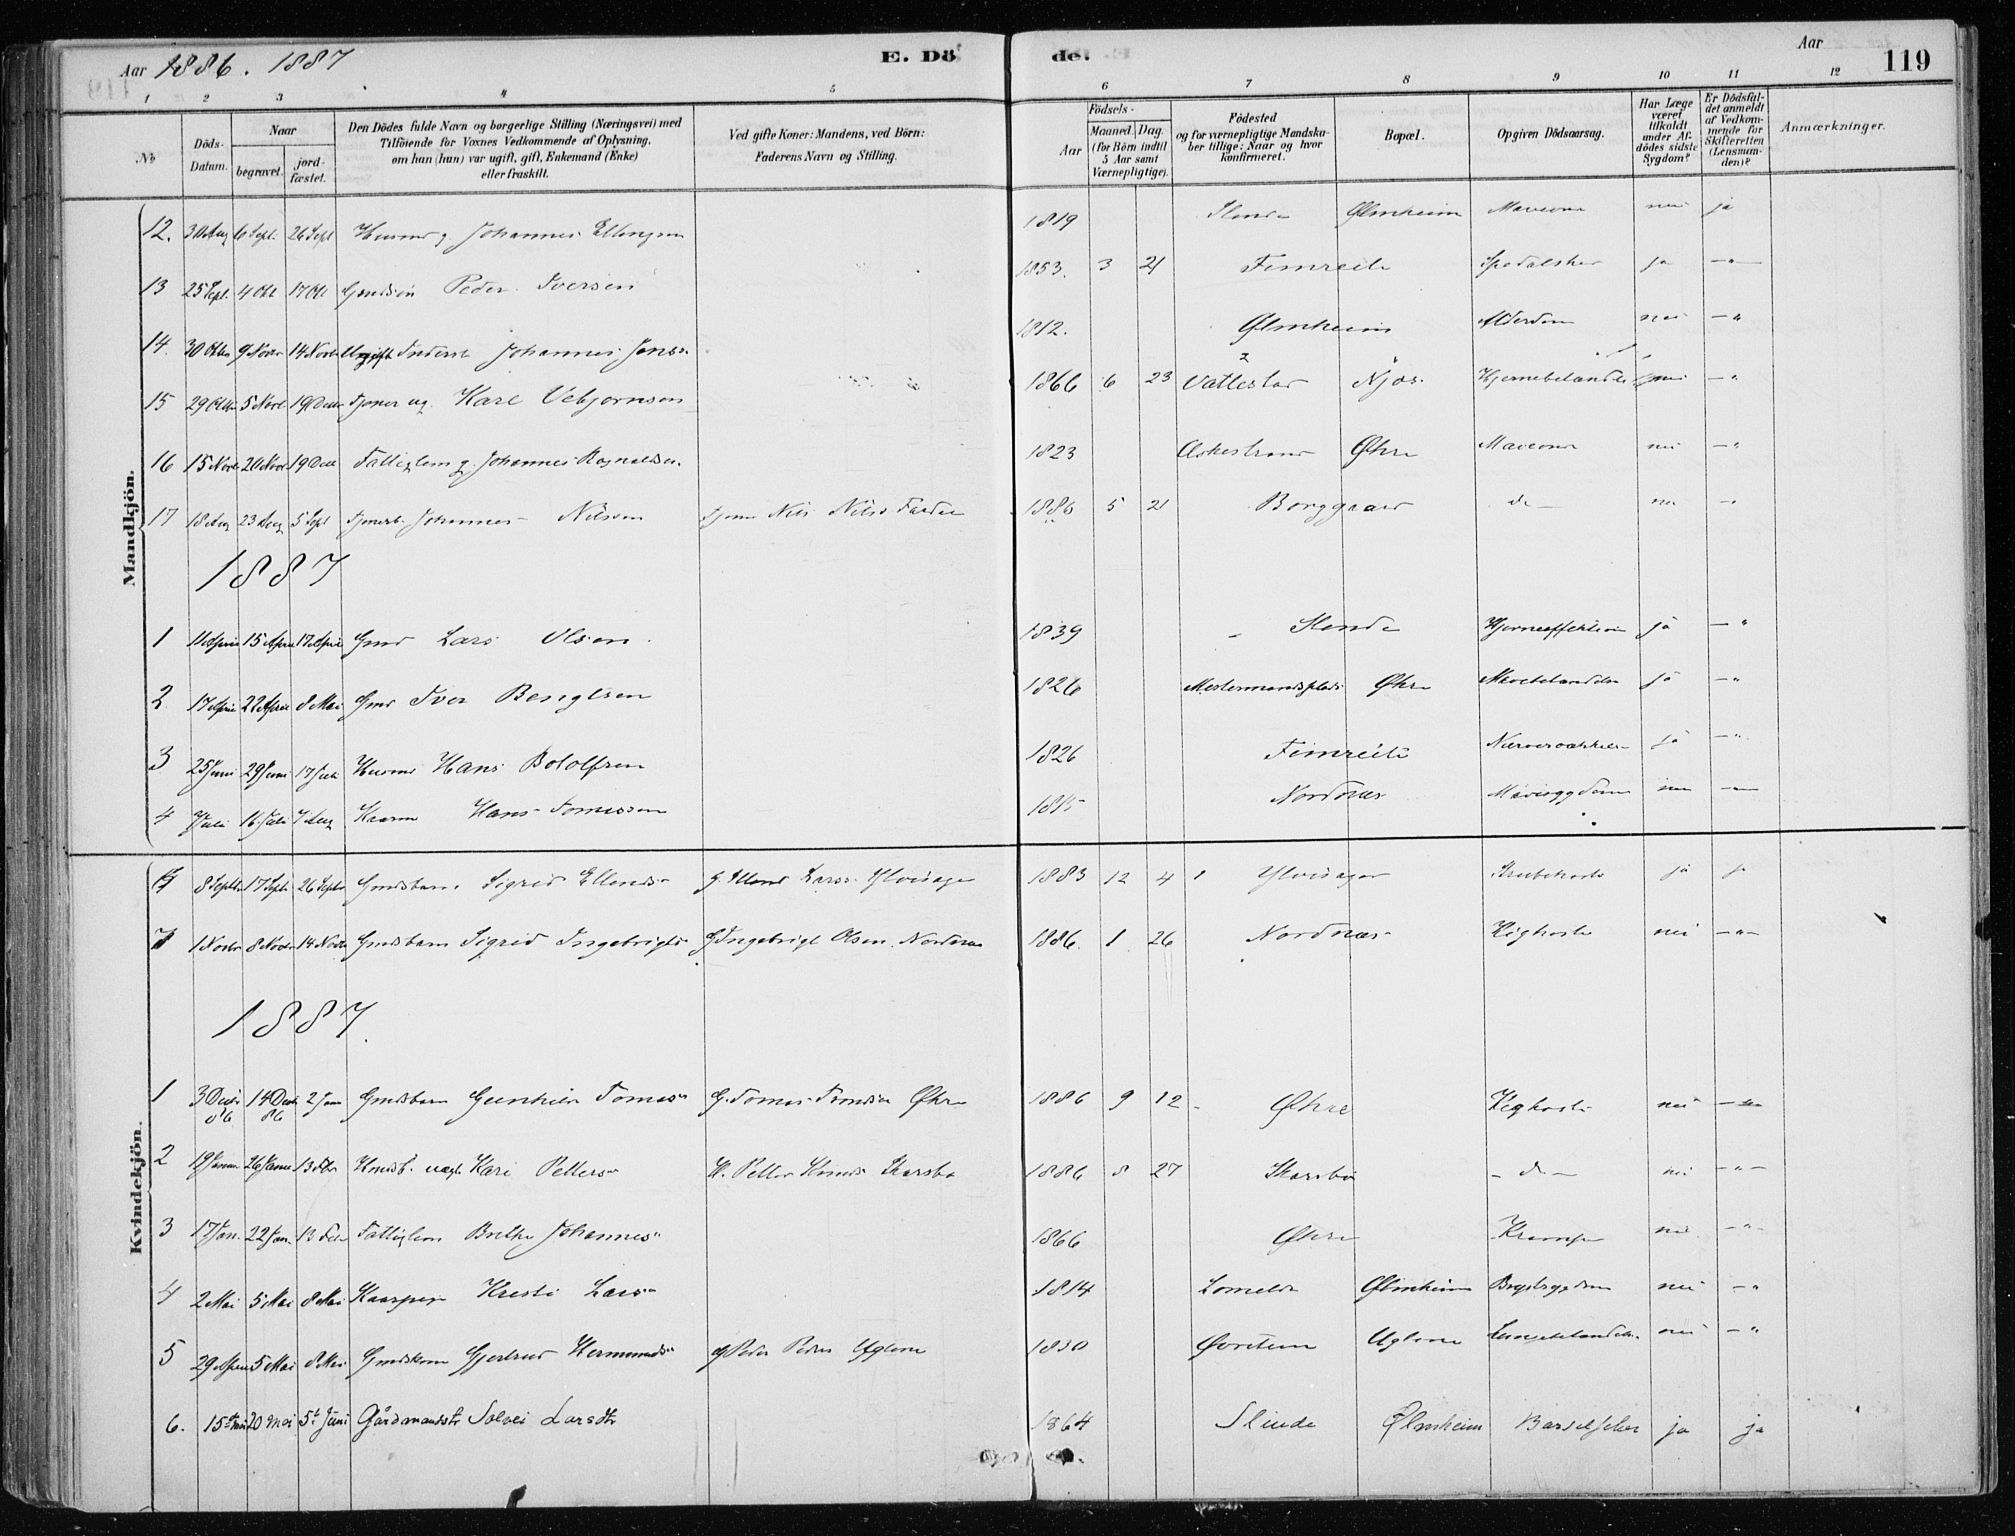 Aar 1886. 1887 E. Dö de. Aar 119
1 2 3 4 5 6 7 8 9 10 11 12
No
Döds-Datum.
Naar
begravet.
jord-fæstet.
Den Dödes fulde Navn og borgerlige Stilling (Næringsvei) med
Tilföiende for Voxnes Vedkommende af Oplysning,
om han (hun) var ugift, gift, Enkemand (Enke)
eller fraskilt.
Ved gifte Koner: Mandens, ved Börn:
Faderens Navn og Stilling.
Födsels-
Aar
Maaned. Dag.
(for Börn indtil
5 Aar samt
Værnepligtige).
Födested
og for værnepligtige Mandska-
ber tillige: Naar og hvor
konfirmeret.
Bopæl.
Opgiven Dödsaarsag.
Har Læge
været
tilkaldt
under Af-
dödes sidste
Sygdom?
Er Dödsfal-
det anmeldt
af Vedkom-
mende for
Skifteretten
(Lensman-
den)?
Anmærkninger.
Mandkjön.
12. 30 Aug 6 Sept. 26 Sept Husmd g. Johannes Ellingsen 1819 Ølmheim nei ja
13 25 Sept. 4 Okt 17 Okt Gmdssøn Peder Iversen 1853. 3 21 Fimreite Spedalskh ja - " -
14. 30 Oktbr 9 Novbr 14 Novbr Ugift Inderst Johannes Jonss 1812. Ølmheim Alderdom nei - "
15 29 Oktbr 5 Novbr 19 Decbr Tjener ug. Karl Vebjørnsen 1866 6 23 Vattestad Njøs Hjernebetændelse nei - "
16 15 Novbr 20 Novbr 19 Decbr Fattiglem g. Johannes Ragnaldsen 1823 Askestrand Øhre nei - "
17 18 Aug 23 Aug 5 Sept Tjenerb. Johannes Nilssen Tjener Nils Nilss 1886 5 21 Borggaard do - nei - "
1887
1 11 April 15 April 17 April Gmd Lars Olsen 1839 Slinde Hjerneaffektion ja - "
2 17 April 22 April 8 Mai Gmd Iver Bengtsen 1826 Mestermandsplads Øhre ja - "
3 25 Juni 29 Juni 17 Juli Husmd Hans Botolfsen 1826 Fimreite ja - "
4 Juli 16 Juli 7 Aug Kaarm Hans Tomassen 1815 Nordnæs nei
Kvindekjön.
8 Septbr 17 Septbr 26 Septbr Gmdsbarn Sigrid Ellends G. Ellend Larss Ylvisager 1883 12 4 Ylvisager Strubehoste ja ja
7 1 Novbr 8 Novbr 14 Novbr Gmdsbarn Sigrid Ingebrigts G Ingebrigt Olsen Nordnæs 1886. 1 26 Nordnæs Kighoste nei - " -
1887.
1 3 Decbr 86 14 Decbr 86 2 Jan Gmdsbarn Gunhild Tomas G. Tomas Tomass Øhre 1886 9 12 Øhre Kighoste nei - " -
2 19 Januar 26 Januar 13 Febr Hmdsb. Kari Petters H. Petter Knuds Skarsbø 1886 8 27 Skarsbø - do - nei - " -
3 17 Jan. 22 Jan. 13 Febr Fattiglem Brithe Johannes 1866 Øhre Krampe nei - " -
4 2 Mai 5 Mai 8 Mai Kaarpige Kristi Lars 1814 Lomelde Ølmheim Brystsygdom nei - "
5 29 April 5 Mai 8 Mai Gmdskone Gjertrud Hermunds g Peder Peders Uglum 1830 Øvretun Uglum Lungebetændelse nei - "
6. 15de Mai 20 Mai 5te Juni Gårdmandsdtr Solvei Larsdtr 1864 Slinde Ølmheim Barselfeber ja ja